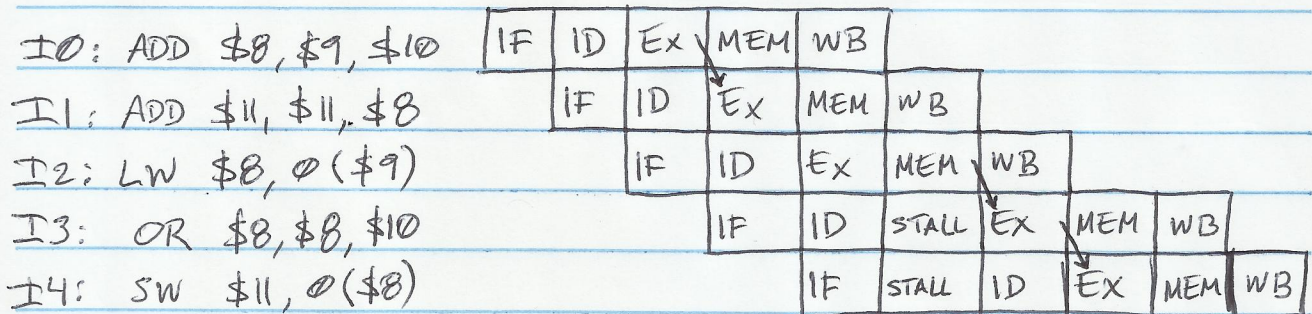 I0: ADD $8, $9, $10 IF ID EX MEM WB
I1: ADD $11, $11, $8 IF ID EX MEM WB
I2: LW $8, 0($9) IF ID EX MEM WB
I3: OR $8, $8, $10 IF ID STALL EX MEM WB
I4: SW $11, 0($8) IF STALL ID EX MEM WB